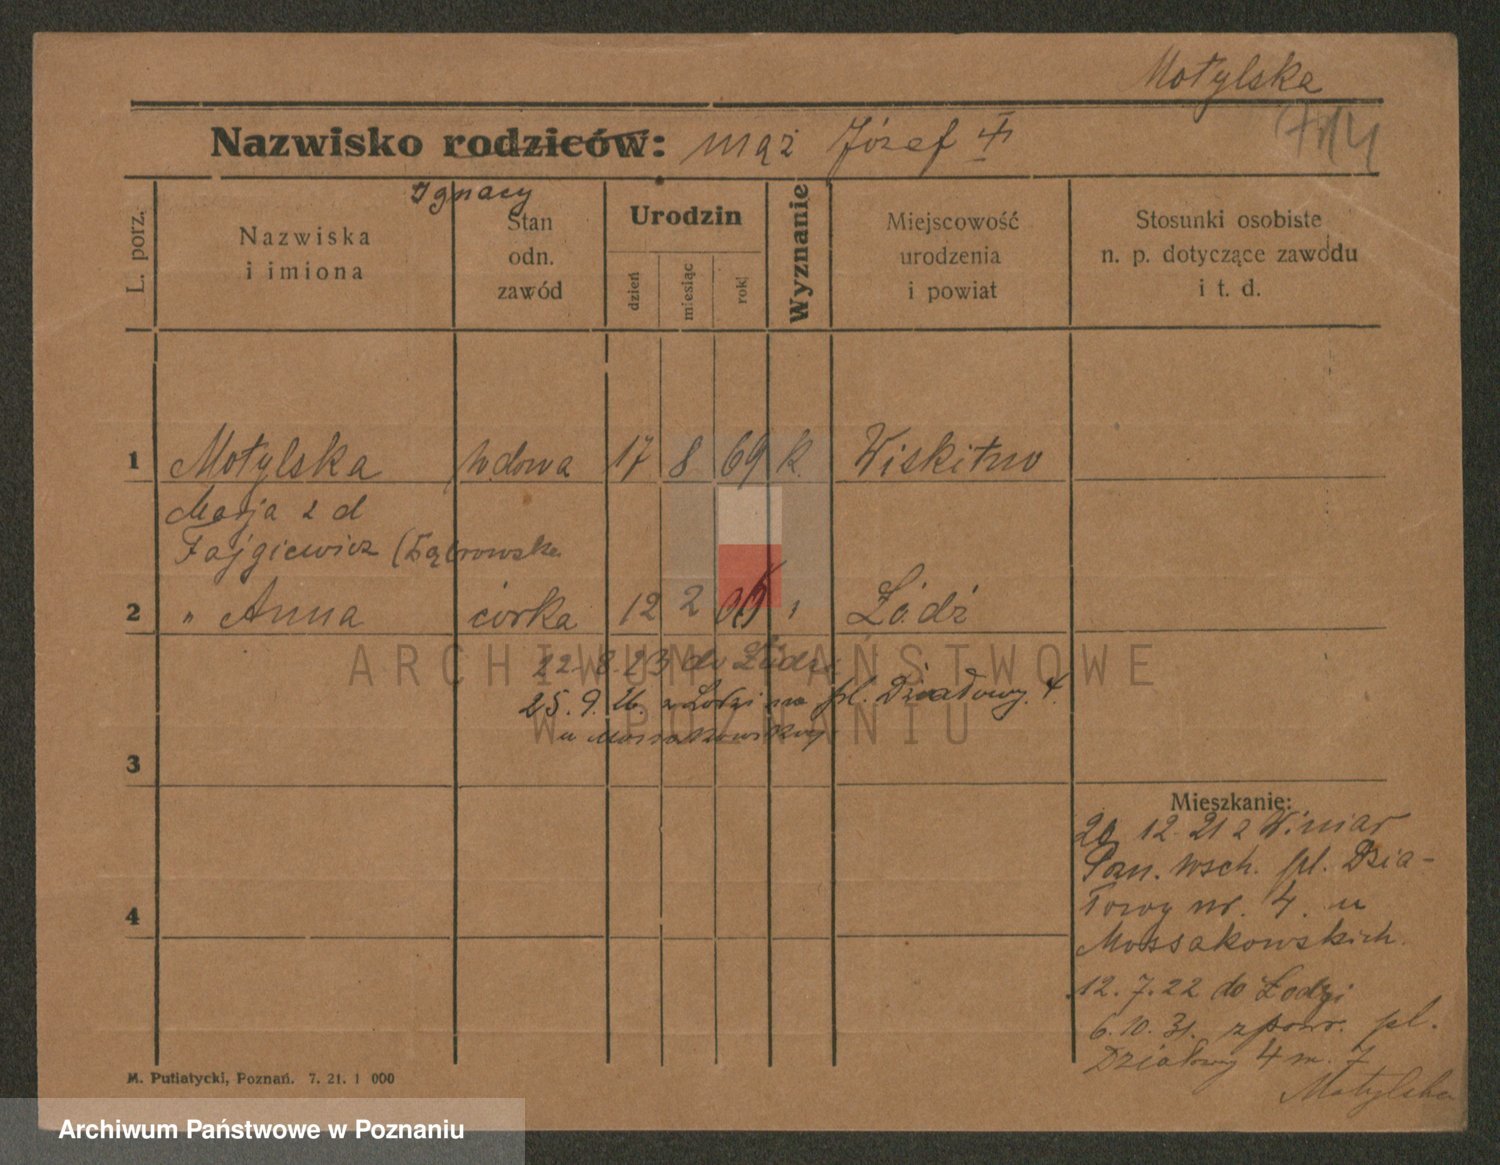 Motylska
Nazwisko rodziców: mąż Józef †
7114
Ignacy
L. porz.
Nazwiska
i imiona
Stan
odn.
zawód
Urodzin
dzień
miesiąc
rok
Wyznanie
Miejscowość
urodzenia
i powiat
Stosunki osobiste
n. p. dotyczące zawodu
i t. d.
1 Motylska wdowa 17 8 69 k. Wiskitno
Marja 2 d
Fajgiewicz (Dąbrowska
2 " Anna córka 12 2 Łódź
22.8.23 do Łodzi
25.9.26. z Łodzi na pl. Działowy. 4.
u Mossakowskiej
3
Mieszkanie:
20 12 21 z Winiar
Pozn. wsch. pl. Dzia-
łowy nr. 4. u
Mossakowskich.
4
12.7.22 do Łodzi
6.10.31. zpowr. pl.
Działowy 4 m. 7
Motylska
M. Putiatycki, Poznań. 7. 21. 1 000
ARCHIWUM PAŃSTWOWE
W POZNANIU
Archiwum Państwowe w Poznaniu